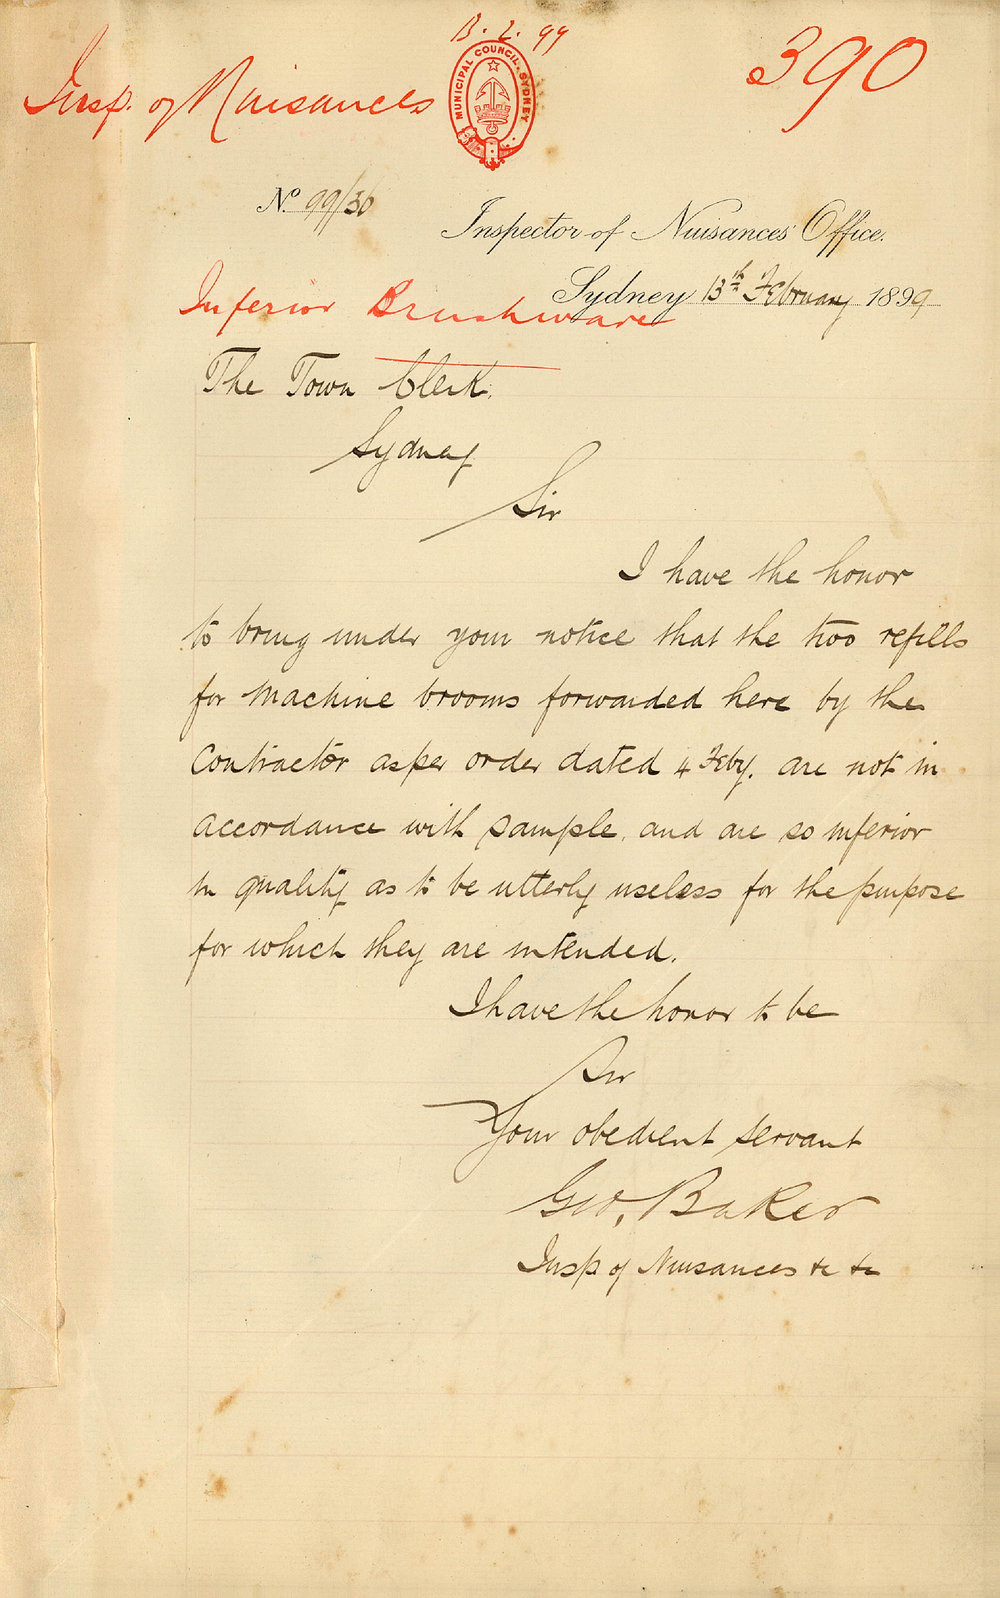 13. 2. 99
Insp. of Nuisances
390
MUNICIPAL COUNCIL. SYDNEY
No. 99/36
Inspector of Nuisances' Office.
Sydney 13th February 1899
Inferior Brushware
The Town Clerk.
Sydney
Sir
I have the honor
to bring under your notice that the two refills
for Machine brooms forwarded here by the
Contractor as per order dated 4 Feby. are not in
accordance with sample, and are so inferior
in quality as to be utterly useless for the purpose
for which they are intended.
I have the honor to be
Sir
Your obedient servant
Geo, Baker
Insp of Nuisances &c &c